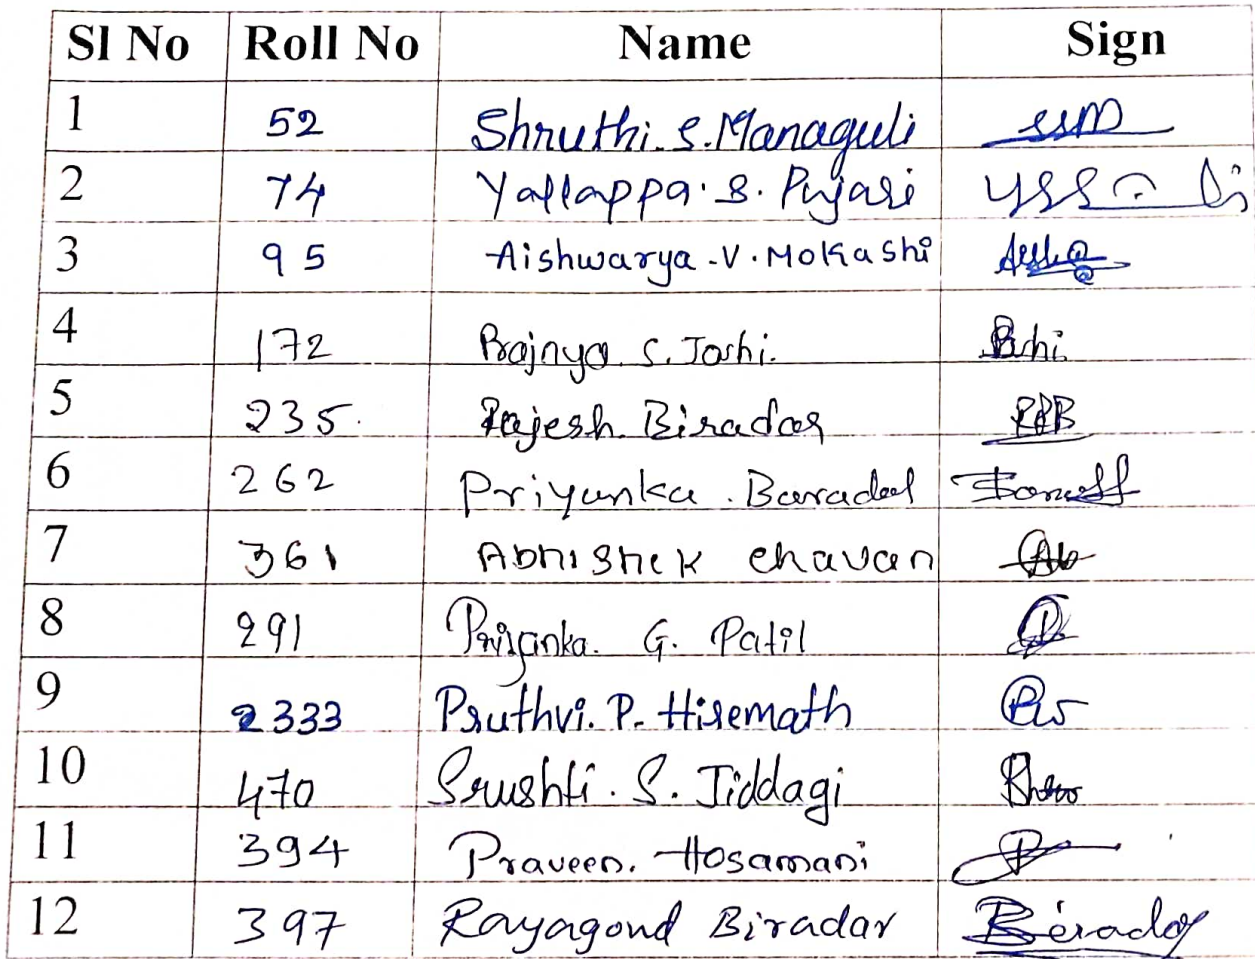 Sl No Roll No Name Sign
1 52 Shruthi. S. Managuli SSM
2 74 Yallappa. S. Pujari
3 95 Aishwarya. V. Mokashi
4 172 Prajnya. S. Joshi.
5 235. Rajesh. Biradar RRB
6 262 Priyanka. Baradol
7 361 Abhishek chavan Ab
8 291 Priyanka. G. Patil P
9 2333 Pruthvi. P. Hiremath
10 470 Srushti. S. Jiddagi
11 394 Praveen. Hosamani P
12 397 Rayagond Biradar Birador